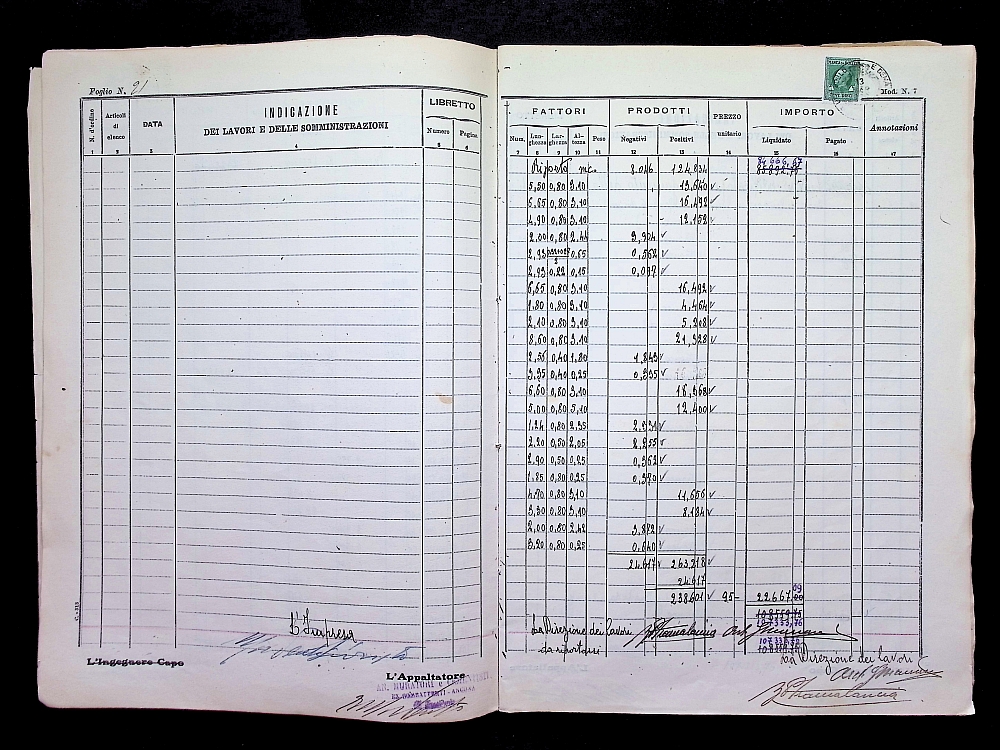 Foglio N. 91
Mod. N. 7
N. d'ordine Articoli di elenco DATA INDICAZIONE DEI LAVORI E DELLE SOMMINISTRAZIONI LIBRETTO Numero Pagina
FATTORI PRODOTTI PREZZO unitario IMPORTO Annotazioni
Num. Lunghezza Larghezza Altezza Peso Negativi Positivi Liquidato Pagato
1 2 3 4 5 6 7 8 9 10 11 12 13 14 15 16 17
84666,67
Riporto mc. 8.046 124.834
5,50 0,80 3,10 13,640
6,65 0,80 3,10 16,492
4,90 0,80 3,10 12,152
2,00 0,80 2,44 3,904
2,93 0,65 0,562
2,93 0,22 0,15 0,097
6,65 0,80 3,10 16,492
1,80 0,80 3,10 4,464
2,10 0,80 3,10 5,208
8,60 0,80 3,10 21,328
2,56 0,40 1,80 1,843
3,95 0,40 0,25 0,395
6,60 0,80 3,10 16,368
5,00 0,80 3,10 12,400
1,24 0,80 2,95 2,931
2,20 0,50 2,05 2,255
2,90 0,50 0,25 0,362
1,85 0,80 0,25 0,370
4,70 0,80 3,10 11,656
3,30 0,80 3,10 8,184
2,00 0,80 2,42 3,872
3,20 0,80 0,25 0,640
24.617 263,218
24.617
238.601 95- 22.667,09
107333,76
L'Impresa
La Direzione dei Lavori
da riportarsi
107333,76
La Direzione dei lavori
L'Ingegnere Capo
L'Appaltatore
EX COMBATTENTI - ANCONA